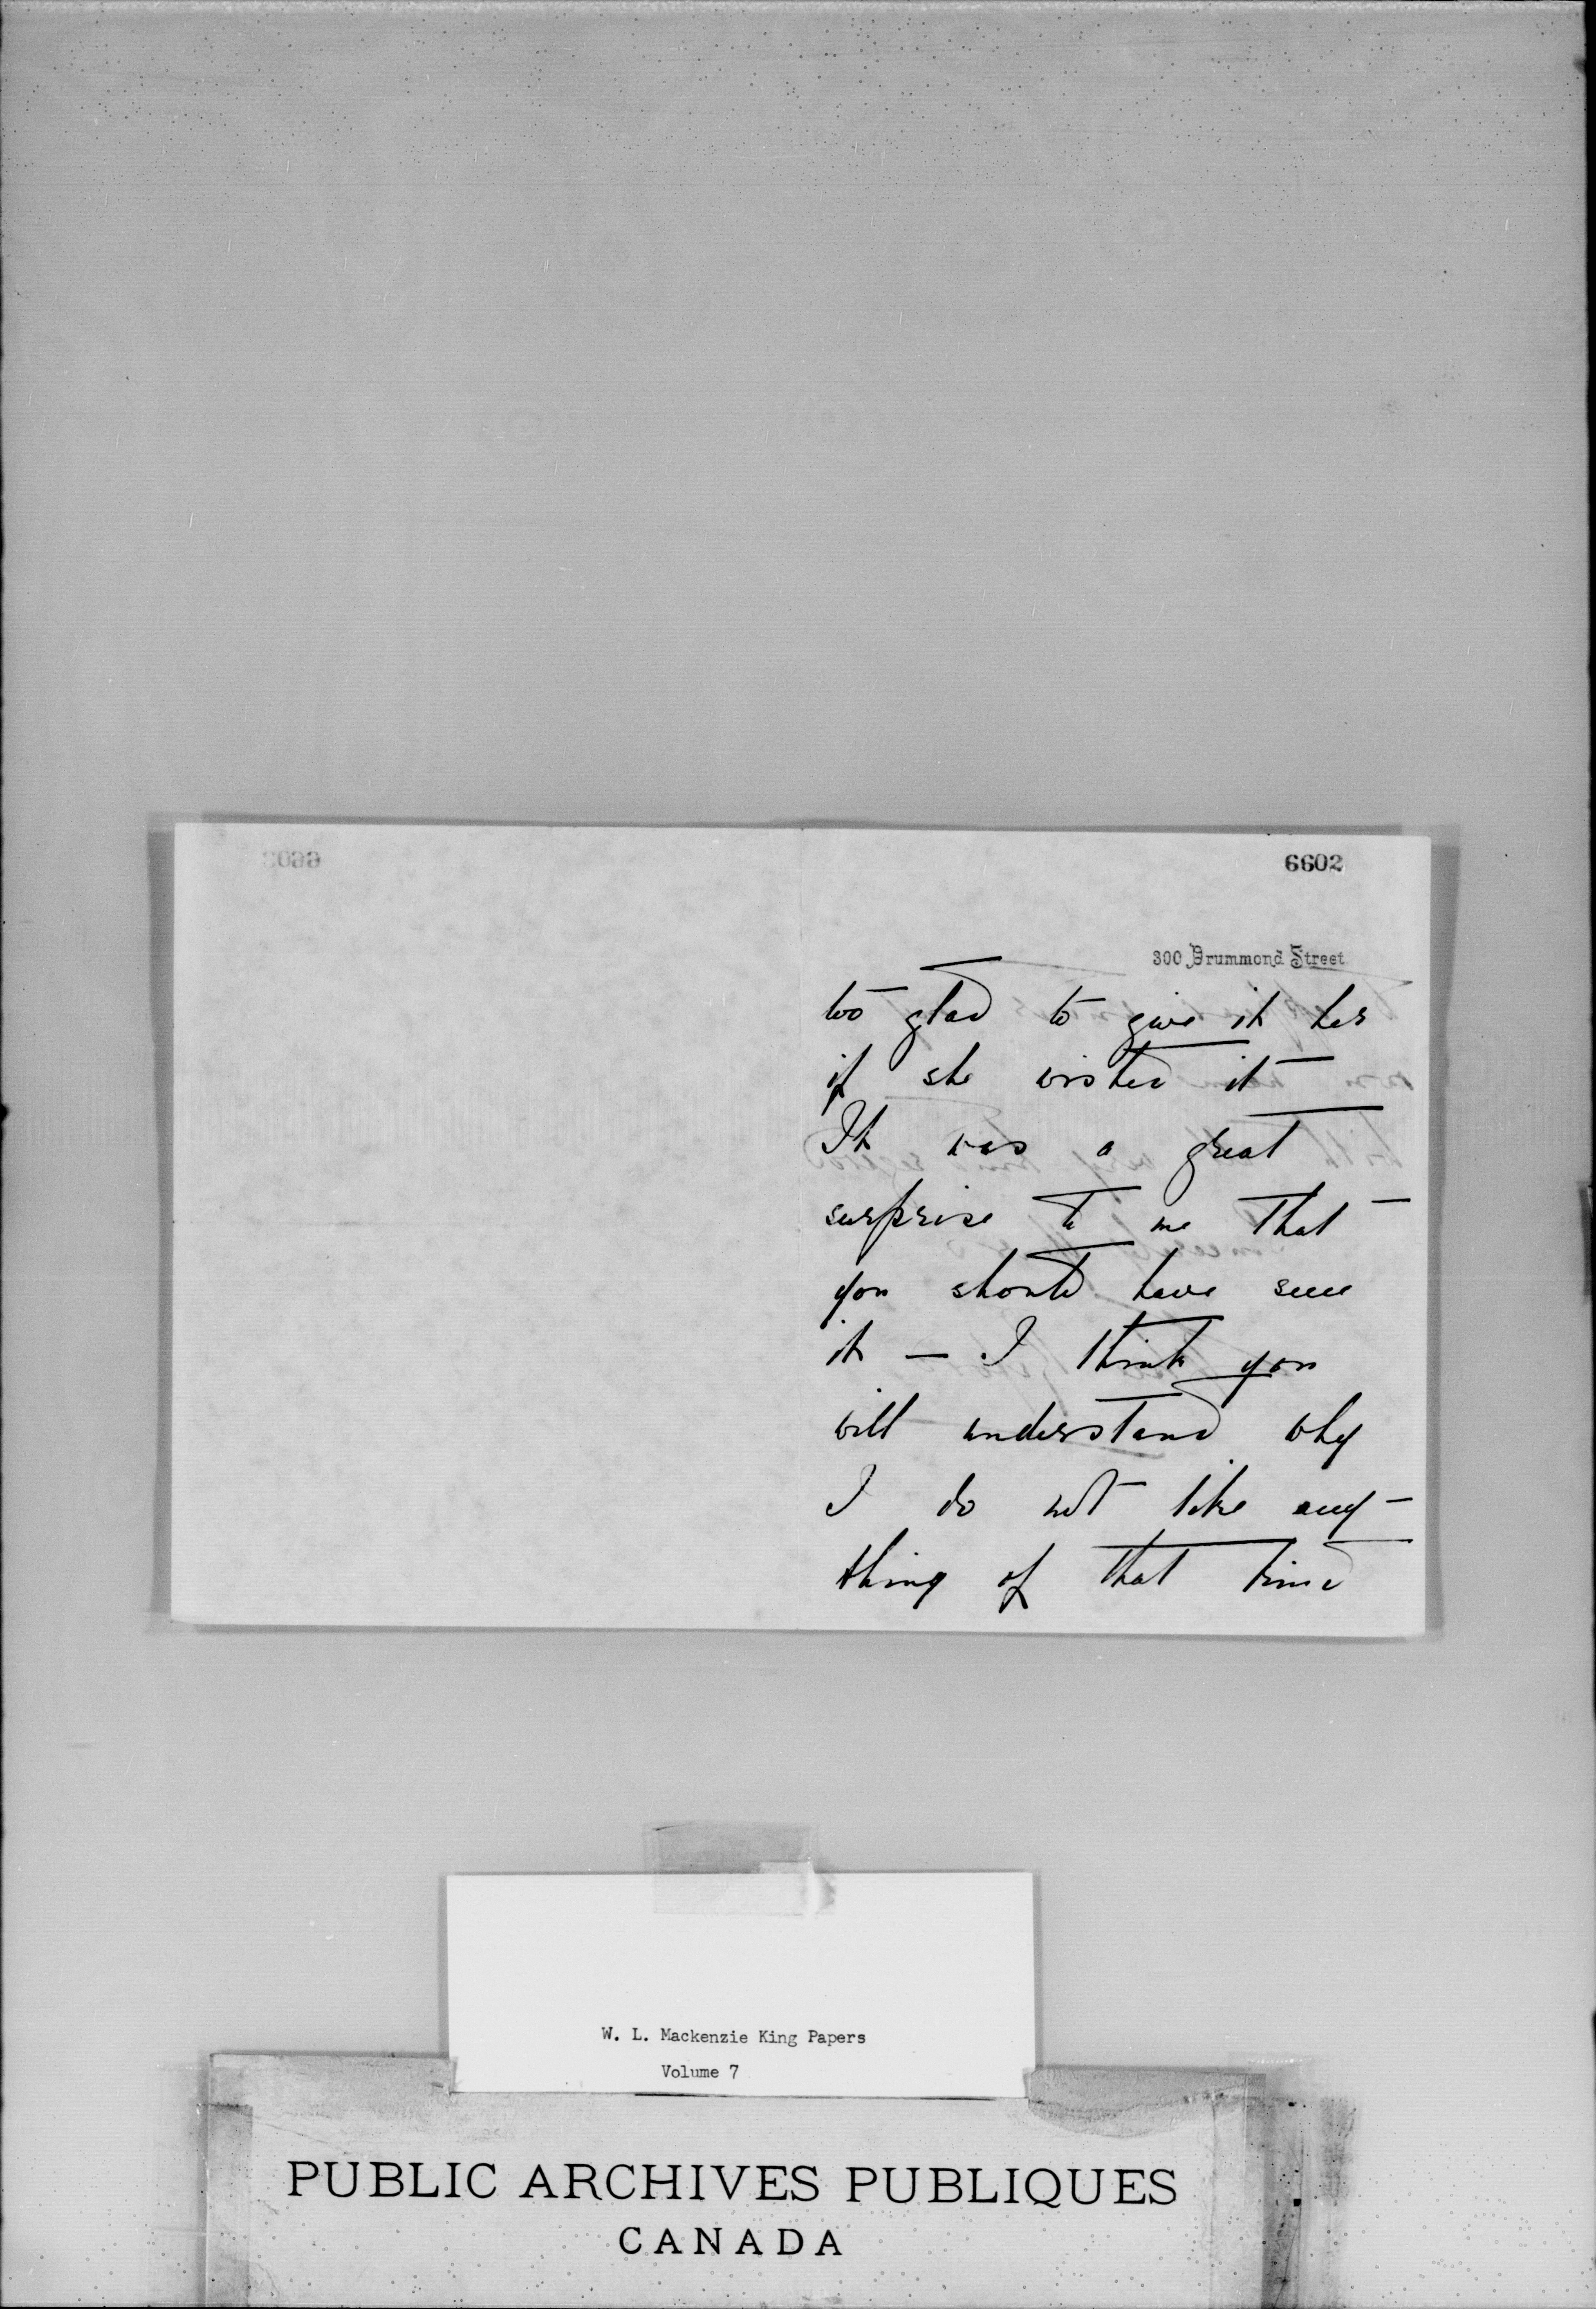 6602
300 Drummond Street
too glad to give it her
if she wished it
It was a great
surprise to me that
you should have seen
it — I think you
will understand why
I do not like any-
thing of that kind
W. L. Mackenzie King Papers
Volume 7
PUBLIC ARCHIVES PUBLIQUES
CANADA